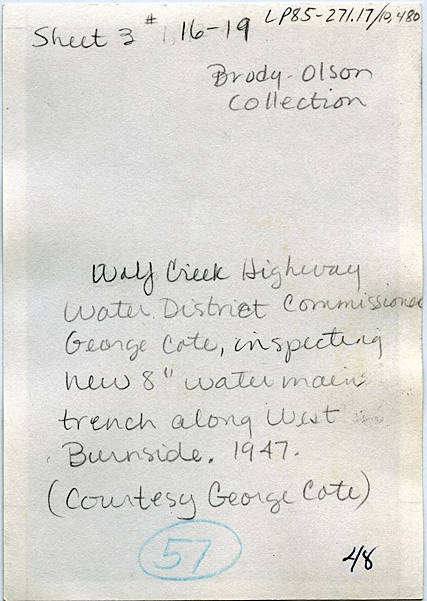 LP85-271.17/10,480
Sheet 3 # 1, 16-19
Brody-Olson
Collection
Wolf Creek Highway
Water District Commissioner
George Cote, inspecting
new 8" water main
trench along West
Burnside. 1947.
(Courtesy George Cote)
57
48